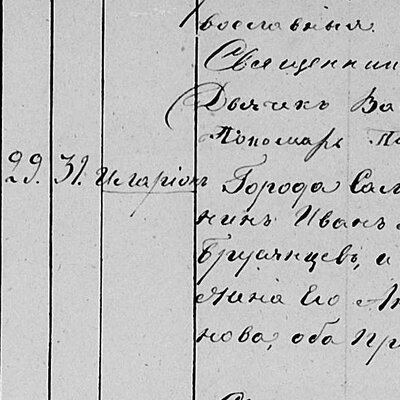 вославныя.
Священник
Дьячекъ Ва
Пономарь Па
29. 31. Иларіонъ Города Сам
нинъ Иванъ
Брусянцевъ, и
Его
нова, оба пр